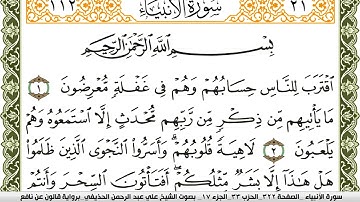 ١١٢ سُورَةُ الْأَنبِيَاءِ ٢١
بِسْمِ اللَّهِ الرَّحْمَٰنِ الرَّحِيمِ
اقْتَرَبَ لِلنَّاسِ حِسَابُهُمْ وَهُمْ فِي غَفْلَةٍ مُّعْرِضُونَ ١
مَا يَأْتِيهِم مِّن ذِكْرٍ مِّن رَّبِّهِم مُّحْدَثٍ إِلَّا اسْتَمَعُوهُ وَهُمْ
يَلْعَبُونَ ٢ لَاهِيَةً قُلُوبُهُمْ وَأَسَرُّوا النَّجْوَى الَّذِينَ ظَلَمُوا
هَلْ هَٰذَا إِلَّا بَشَرٌ مِّثْلُكُمْ أَفَتَأْتُونَ السِّحْرَ وَأَنتُمْ
سورة الأنبياء _الصفحة ٣٢٢_ الحزب ٣٣_ الجزء ١٧_ بصوت الشيخ علي عبد الرحمن الحذيفي_ برواية قالون عن نافع